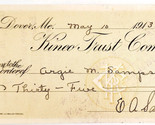 Dover, Me. May 10 1913
Kineo Trust Com
Pay to the
order of Argie M. Samps
Thirty-Five